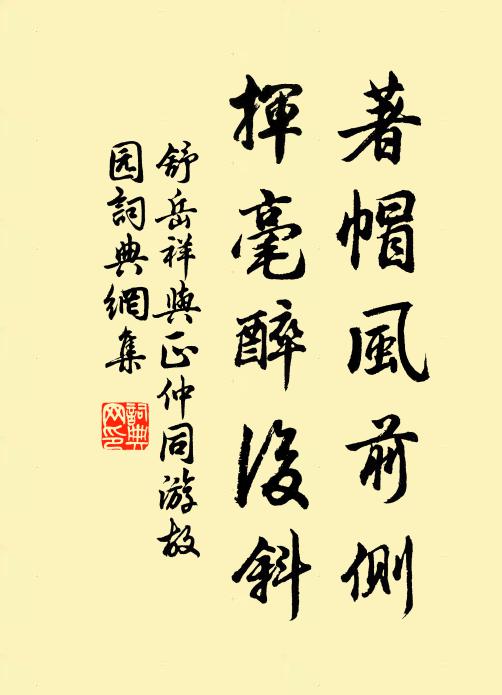 著帽風前側
揮毫醉後斜
舒岳祥與正仲同游故
园詞典網集
詞典
网印